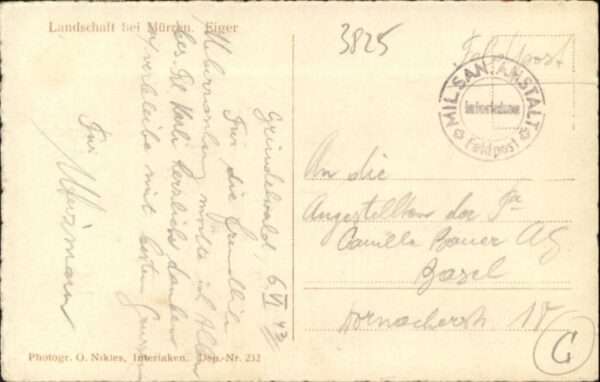 Landschaft bei Mürren. Eiger
3825
Feldpost
MIL. SAN. ANSTALT
Interlaken
Feldpost
Grindelwald, 6. VI 43
Für die freundliche
möchte ich Allen
herzlich danken
verbleibe mit besten Grüssen
Ihr
An die
Angestellten der Fa
Camille Bauer AG.
Basel
Dornacherstr. 18
Photogr. O. Nikles, Interlaken. Dep.-Nr. 232